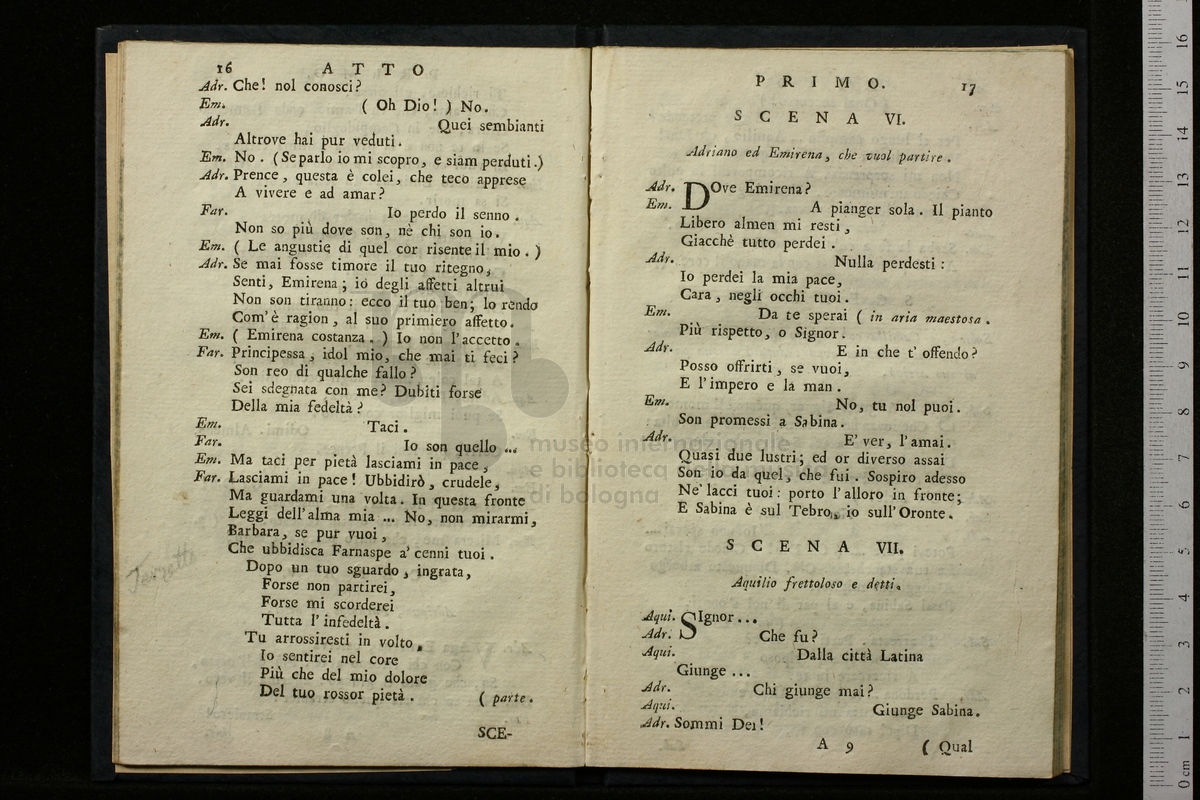 16 ATTO
Adr. Che! nol conosci?
Em. ( Oh Dio! ) No.
Adr. Quei sembianti
Altrove hai pur veduti.
Em. No. (Se parlo io mi scopro, e siam perduti.)
Adr. Prence, questa è colei, che teco apprese
A vivere e ad amar?
Far. Io perdo il senno.
Non so più dove son, nè chi son io.
Em. ( Le angustie di quel cor risente il mio. )
Adr. Se mai fosse timore il tuo ritegno,
Senti, Emirena; io degli affetti altrui
Non son tiranno: ecco il tuo ben; lo rendo
Com'è ragion, al suo primiero affetto.
Em. ( Emirena costanza. ) Io non l'accetto.
Far. Principessa, idol mio, che mai ti feci?
Son reo di qualche fallo?
Sei sdegnata con me? Dubiti forse
Della mia fedeltà?
Em. Taci.
Far. Io son quello ...
Em. Ma taci per pietà lasciami in pace,
Far. Lasciami in pace! Ubbidirò, crudele,
Ma guardami una volta. In questa fronte
Leggi dell'alma mia ... No, non mirarmi,
Barbara, se pur vuoi,
Che ubbidisca Farnaspe a' cenni tuoi.
Dopo un tuo sguardo, ingrata,
Forse non partirei,
Forse mi scorderei
Tutta l'infedeltà.
Tu arrossiresti in volto,
Io sentirei nel core
Più che del mio dolore
Del tuo rossor pietà. ( parte.
SCE-
Terzetto
PRIMO. 17
SCENA VI.
Adriano ed Emirena, che vuol partire.
Adr. DOve Emirena?
Em. A pianger sola. Il pianto
Libero almen mi resti,
Giacchè tutto perdei.
Adr. Nulla perdesti:
Io perdei la mia pace,
Cara, negli occhi tuoi.
Em. Da te sperai ( in aria maestosa.
Più rispetto, o Signor.
Adr. E in che t'offendo?
Posso offrirti, se vuoi,
E l'impero e la man.
Em. No, tu nol puoi.
Son promessi a Sabina.
Adr. E' ver, l'amai.
Quasi due lustri; ed or diverso assai
Son io da quel, che fui. Sospiro adesso
Ne' lacci tuoi: porto l'alloro in fronte;
E Sabina è sul Tebro, io sull'Oronte.
SCENA VII.
Aquilio frettoloso e detti.
Aqui. SIgnor...
Adr. Che fu?
Aqui. Dalla città Latina
Giunge ...
Adr. Chi giunge mai?
Aqui. Giunge Sabina.
Adr. Sommi Dei!
A 9 ( Qual
museo internazionale
e biblioteca della musica
di bologna
0 cm 1 2 3 4 5 6 7 8 9 10 11 12 13 14 15 16